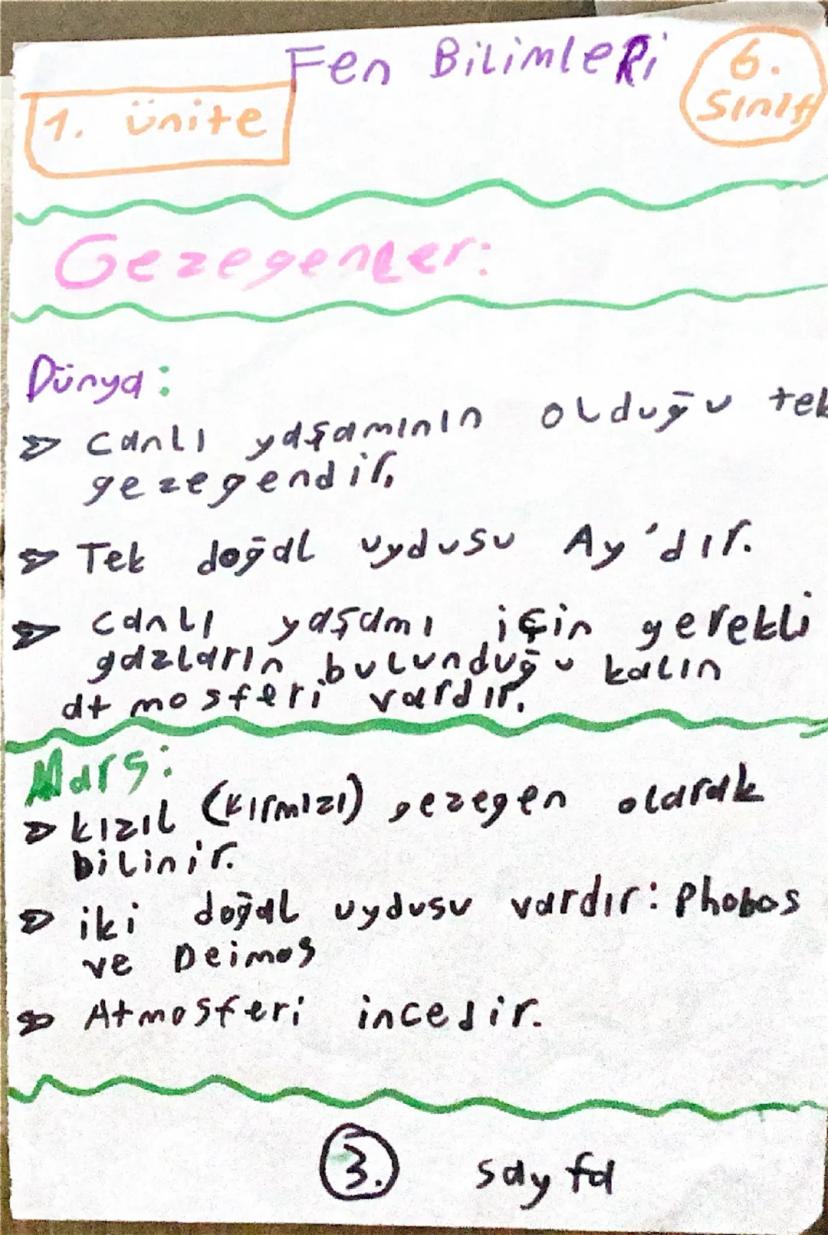 Fen BiLimLeRi
6.
sınıf
1. ünite
Gezegenler:
Dünya:
canlı yaşamının olduğu tek
gezegendir.
Tek doğal uydusu Ay'dır.
canlı yaşamı için gerekli
gazların bulunduğu kalın
atmosferi vardır.
Mars:
kızıl (kırmızı) gezegen olarak
bilinir.
iki doğal uydusu vardır: Phobos
ve Deimos
Atmosferi incedir.
3. sayfa